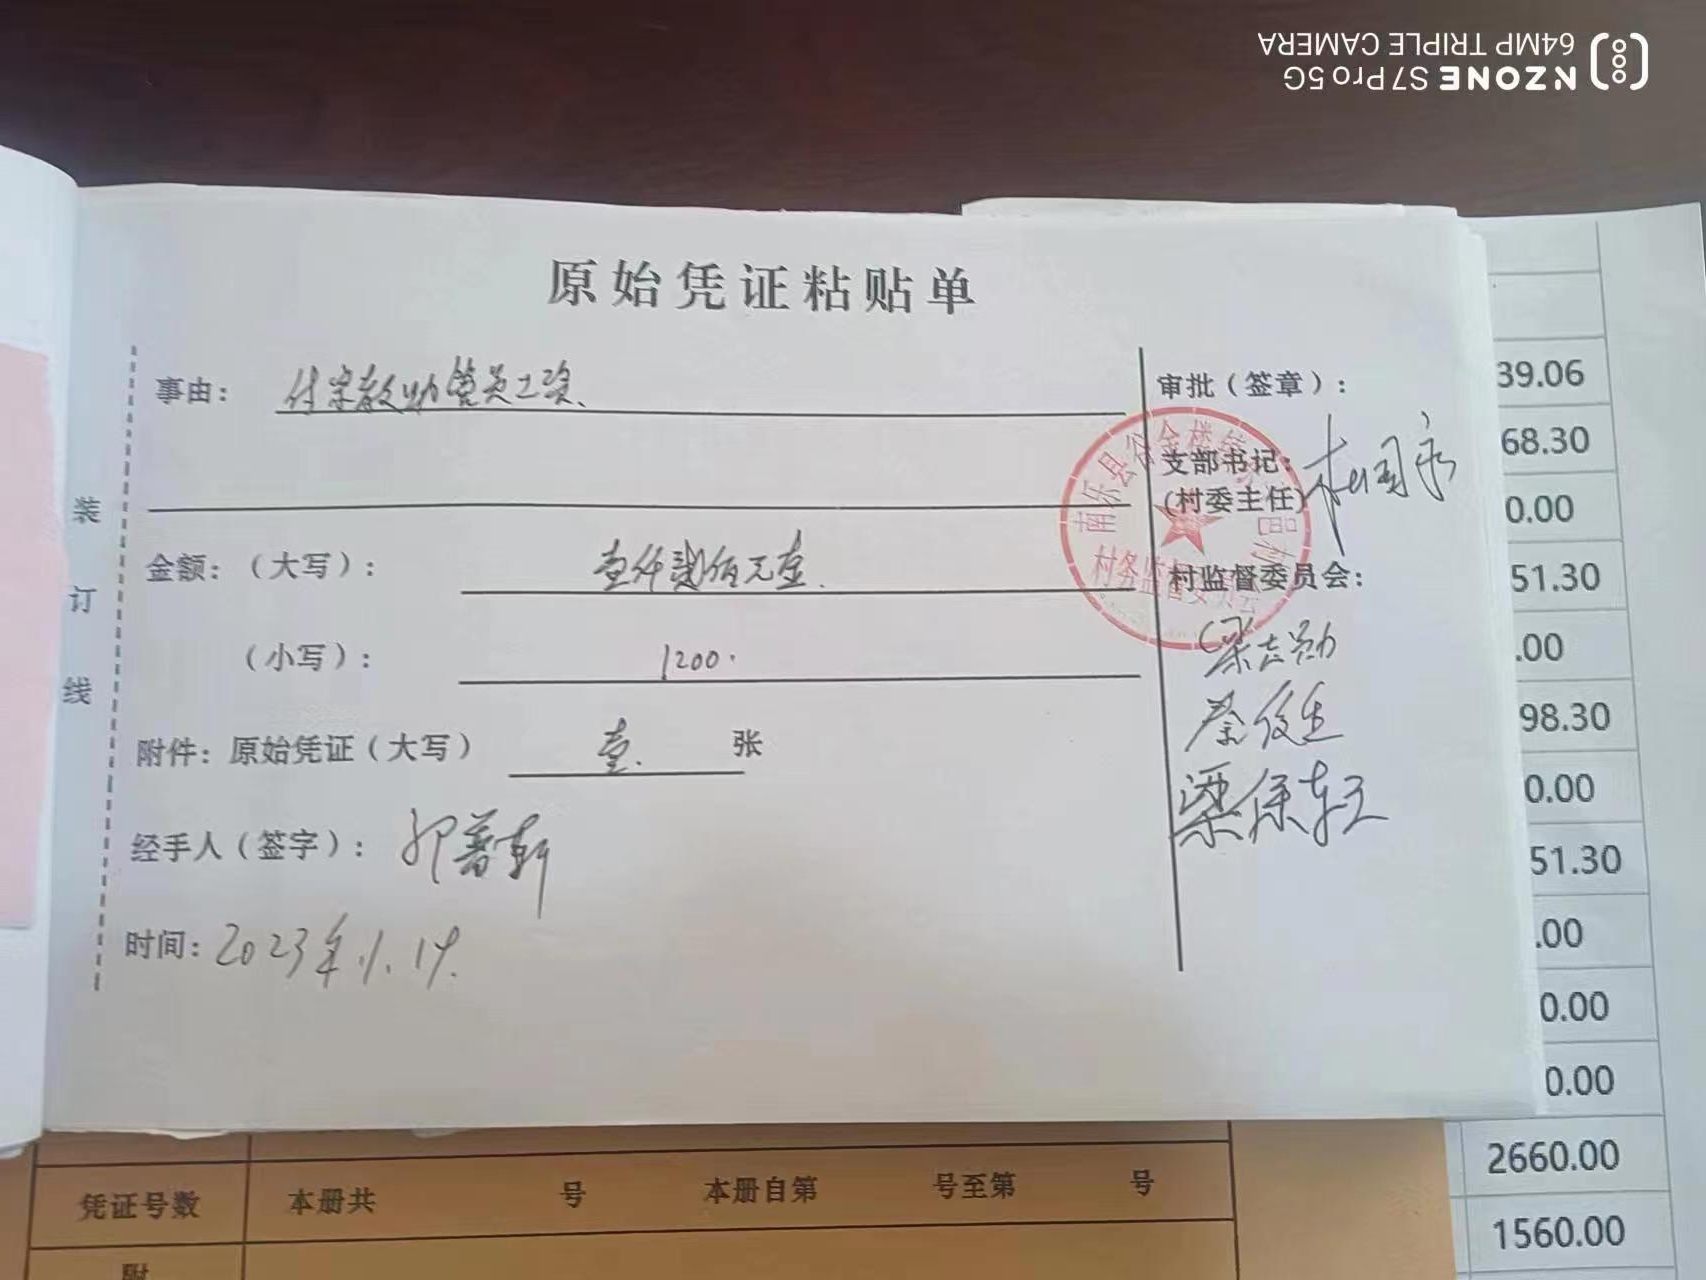 NZONE S7 Pro 5G
64MP TRIPLE CAMERA
原始凭证粘贴单
事由: 付宗教助管员工资
审批(签章):
支部书记:
(村委主任)
金额:(大写): 壹仟贰佰元整
村监督委员会:
(小写): 1200.
附件:原始凭证(大写) 壹. 张
蔡俊生
经手人(签字):
时间: 2023年.1.14.
装订线
南乐县谷金楼
村务监督委员会
39.06
68.30
0.00
51.30
.00
98.30
0.00
51.30
.00
0.00
0.00
2660.00
1560.00
凭证号数 本册共 号 本册自第 号至第 号
附